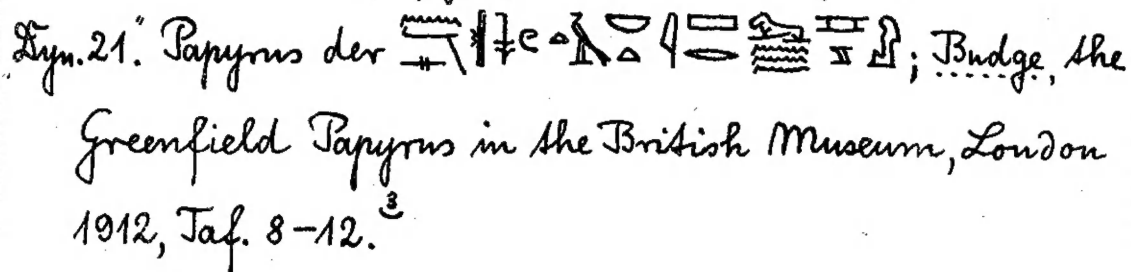 Dyn. 21." Papyrus der ; Budge, the
Greenfield Papyrus in the British Museum, London
1912, Taf. 8–12.³